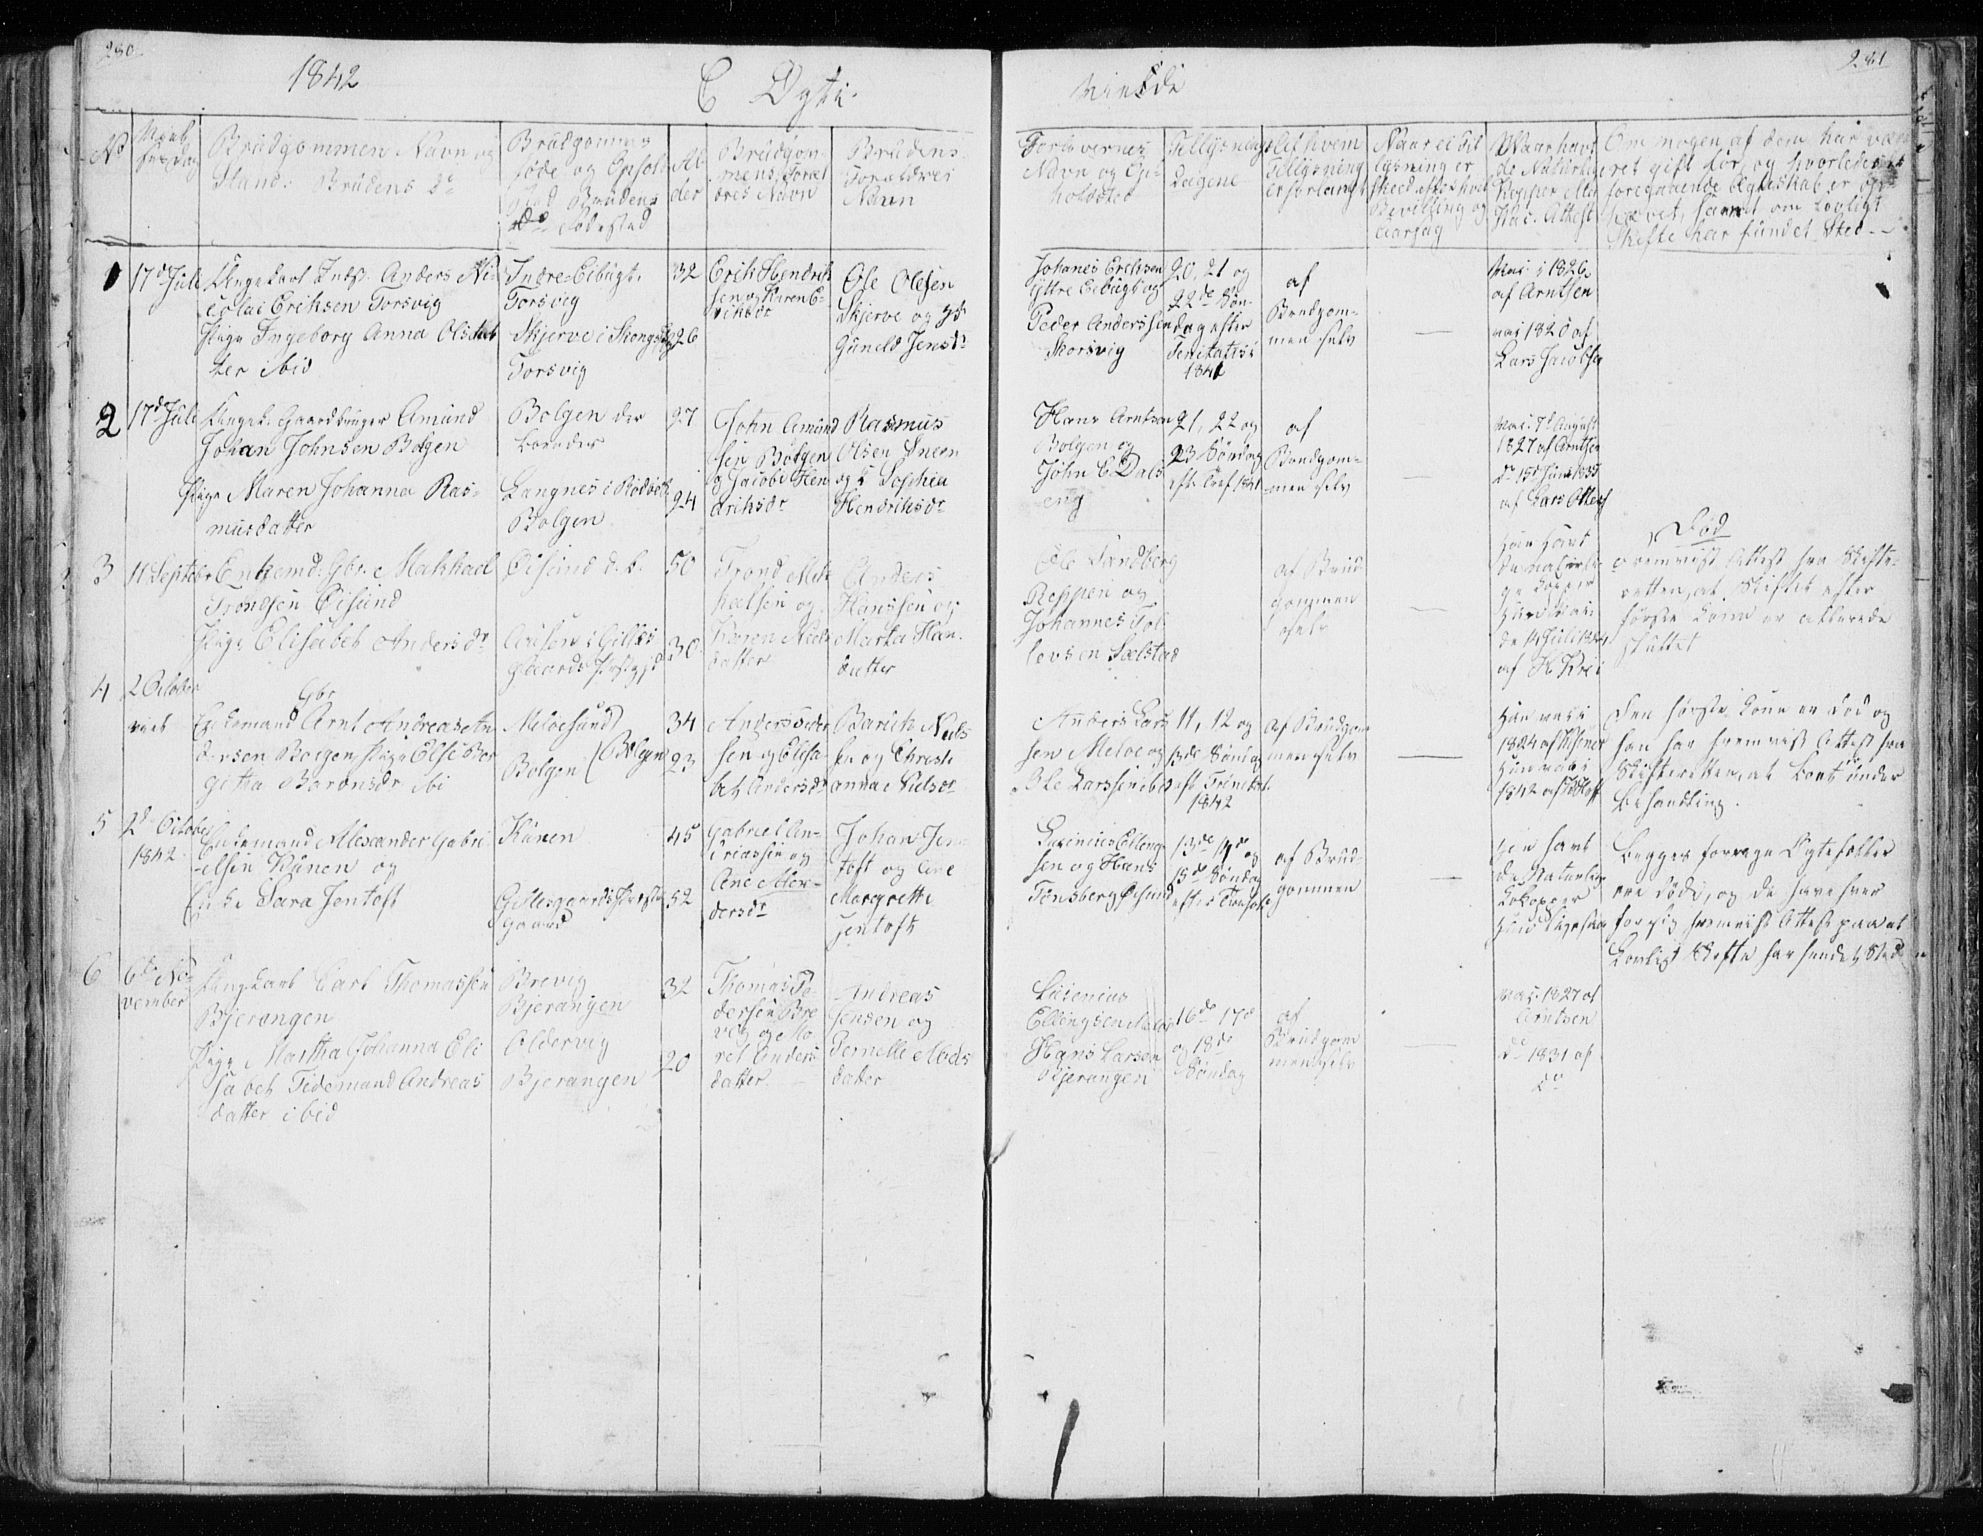 280
281
1842
C Ægte
viede
No
Brudgommens Navn og
Stand. Brudens do
Brudgommens
Føde og Opholds
Sted Brudens
do Fødested
Al-
der
Brudgom-
mens Foræl
dres Navn
Brudens
Forældres
Navn
Forlovernes
Navn og Op-
holdsted
Tillysnings
Dagene
Af hvem
Tillysning
er forlangt
Naar ei Til
lysning er
skeed efter hvad
Bevilling og
Aarsag
Naar havt
de Naturlige
Kopper eller
Vac. Attest
Om nogen af dem har væ
ret gift før, og hvorledes
foregaaende Ægteskab er op
hævet, samt om lovligt
Skifte har fundet Sted
1
17de Juli
Ungekarl Inds. Anders Ni-
colai Eriksen Torsvig
Pige Ingeborg Anna Olsdat
ter ibid
Indre Eibugt
Torsvig
Skjerve i
Torsvig
32
26
Erik Hendrik
sen og Karen E-
riksdr
Ole Olesen
Skjerve og
Guneld Jensdr
Johanes Eriksen
Yttre Eibugt og
Peder Anderssen
Storsvig
20, 21 og
22de Søn-
dag efter
Trinitatis
1841
af
Brudgom-
men selv
—
vac. i 1826
af Arntsen
vac 1820 af
Lars Jacobsen
2
17de Juli
Ungek. Gaardbruger Amund
Johan Johnsen Bolgen
Pige Maren Johanna Ras-
musdatter
Bolgen der
boende
Langnes i Rödö
Bolgen
27
24
John Amund
sen Bolgen
og Jacobe Hen
driksdr
Rasmus
Olsen Sneen
og Sophia
Hendriksdr
Hans Arntsen
Bolgen og
John E. Dals
eng
21, 22 og
23 Søndag
eft. Tref 1841
af
Brudgom-
men selv
—
vac. 7de August
1827 af Arntsen
do 15de Juni 1835
af Lars Ottes
3
11 Septbr
Enkemd. Gbr. Makhael
Trondsen Eisund
Pige Elisabet Andersdr
Eisund d. b.
50
30
Trond Mik
kelsen og
Karen Niels
datter
Anders
Hanssen og
Marta Han
datter
Ole Sandberg
Reppen og
Johannes Tol
levsen Selstad
af Brud
gommen
selv
—
Han havt
de naturli
ge Kopper
Hun vac.
de 14 Juli
af H. Krei
Død
fremvist Attest fra Skifte-
retten, at Skiftet efter
første Kone er allerede
sluttet
4
2 October
Gbr
Enkemand Arnt Andreas An
dersen Bolgen Pige Else Bor
getha Barensdr ibi
Meloesund
Bolgen (Bolgen
34
23
Anders Peder
sen og Elisa
bet Andersdr
Barent Niels
sen og Christi
anna Nielsdr
Anders Lars
sen Meloe og
Ole Larssen ibid
11, 12 og
13de Søndag
eft Trinitat.
1842
af Brudgom
men selv
—
Han vac.
1824 af
Hun vac.
1842 af
Den første Kone er død og
han har fremvist Attest fra
Skifteretten, at Boet under
Behandling.
5
2de October
1842
Enkemand Alexander Gabri
elsen Kunen og
Enke Sara Jentoft
Kunen
Gillesgaard Præste
gaard
45
52
Gabriel An-
driassen og
Ane Alex-
dersdr
Johan Jen
toft og Ane
Margrette
Jentoft
Lusenius Elling-
sen og Hans
Tønsberg Øesund
13de 14de og
15de Søndag
efter Trefoldh
af Brud-
gommen
—
Han havt
de Naturlige
Kopper
Hun ligesaa
Begges forrige Ægtefætter
ere døde, og de have hver
for sig fremvist Attest paa at
Lovligt Skifte har fundet Sted
6
6te No-
vember
Ungkarl Carl Thomassen
Bjerangen
Pige Martha Johanna Eli
sabet Tidemand Andreas
datter ibid
Brevig
Bjerangen
Aldervig
Bjerangen
32
20
Thomas Pe
dersen Bre
vig og Ma
ret Anders
datter
Andreas
Jensen og
Pernelle Mads
datter
Lusenius
Ellingsen Meløe
Hans Larsen
Bjerangen
16de 17de
og 18de
Søndag
af
Brudgom
men selv
—
vac. 1827 af
Arntsen
do 1831 af
do